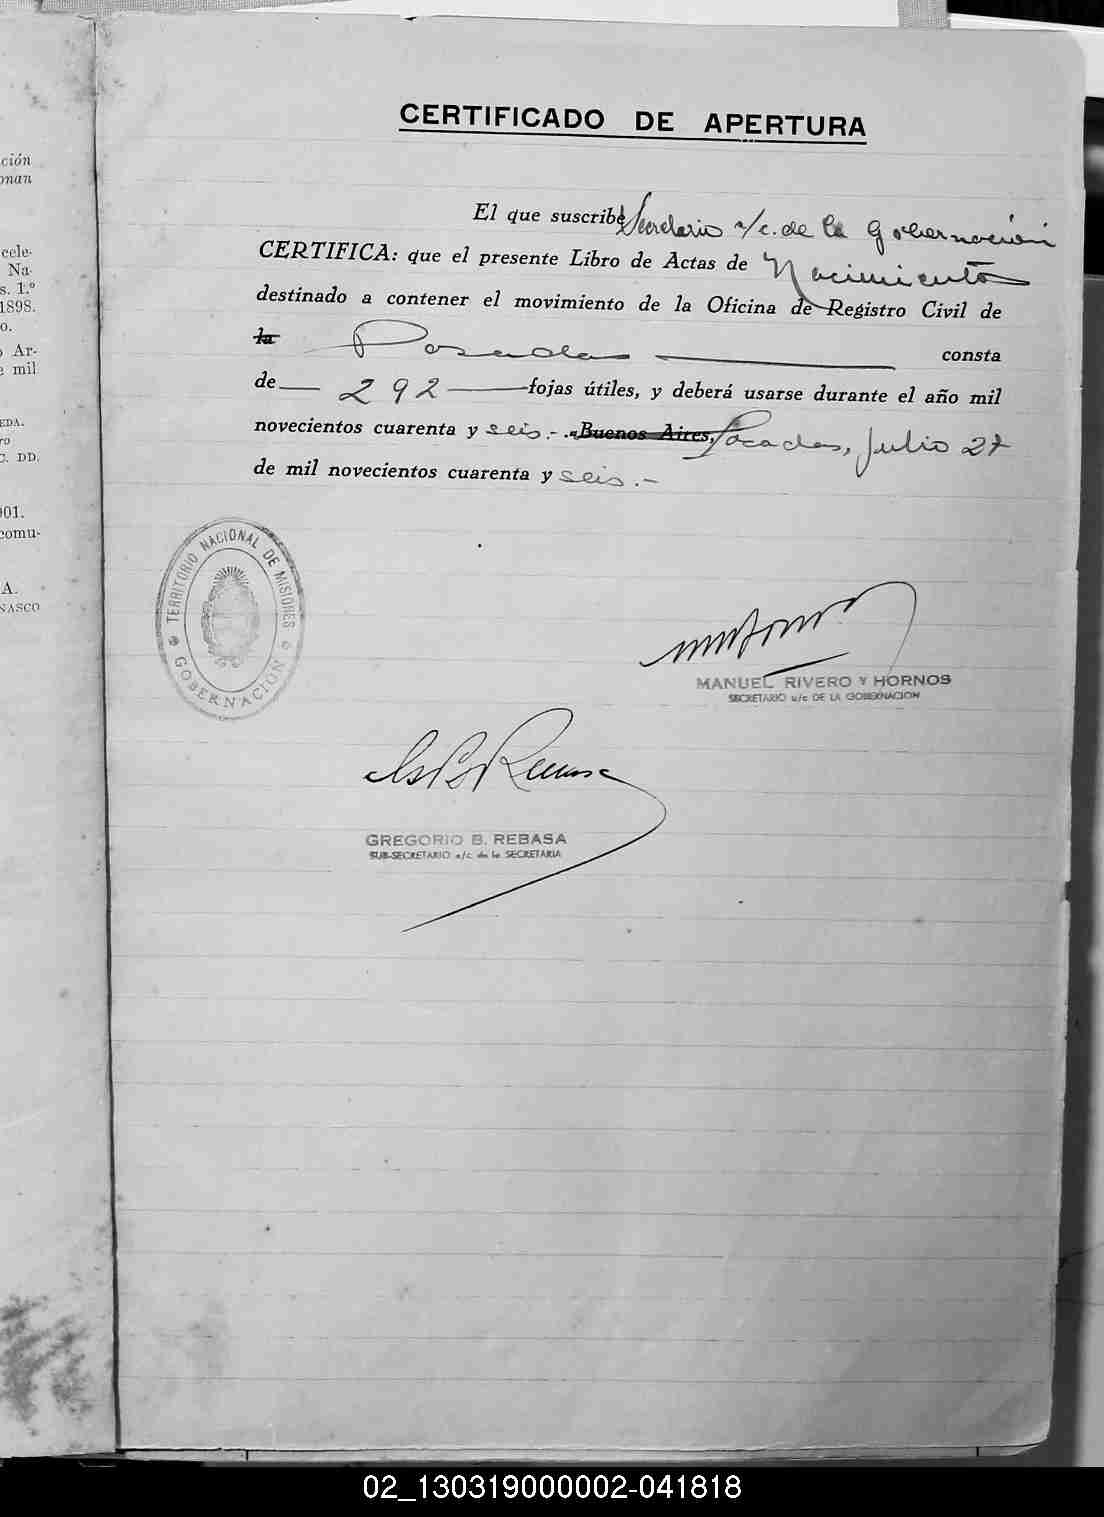 ción
onan
cele-
Na-
s. 1.º
1898.
o.
o Ar-
e mil
EDA.
ro
C. DD.
901.
comu-
A.
NASCO
CERTIFICADO DE APERTURA
El que suscribe Secretario a/c. de la Gobernación
CERTIFICA: que el presente Libro de Actas de Nacimientos
destinado a contener el movimiento de la Oficina de Registro Civil de
la Posadas consta
de 292 fojas útiles, y deberá usarse durante el año mil
novecientos cuarenta y seis.- Buenos Aires, Posadas, Julio 27
de mil novecientos cuarenta y seis.-
TERRITORIO NACIONAL DE MISIONES
GOBERNACION
MANUEL RIVERO Y HORNOS
SECRETARIO a/c DE LA GOBERNACION
GREGORIO B. REBASA
SUB-SECRETARIO a/c de la SECRETARIA
02_130319000002-041818